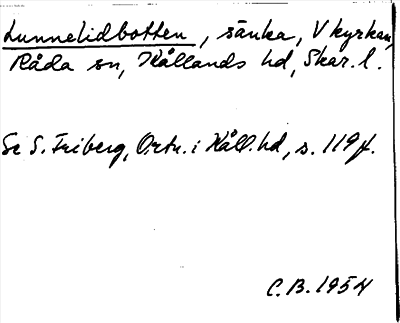 Lunnelidbotten, sänka, V kyrkan,
Råda sn, Kållands hd, Skar. l.
Se S. Friberg, Ortn. i Kåll. hd, s. 119 f.
C.B. 1954